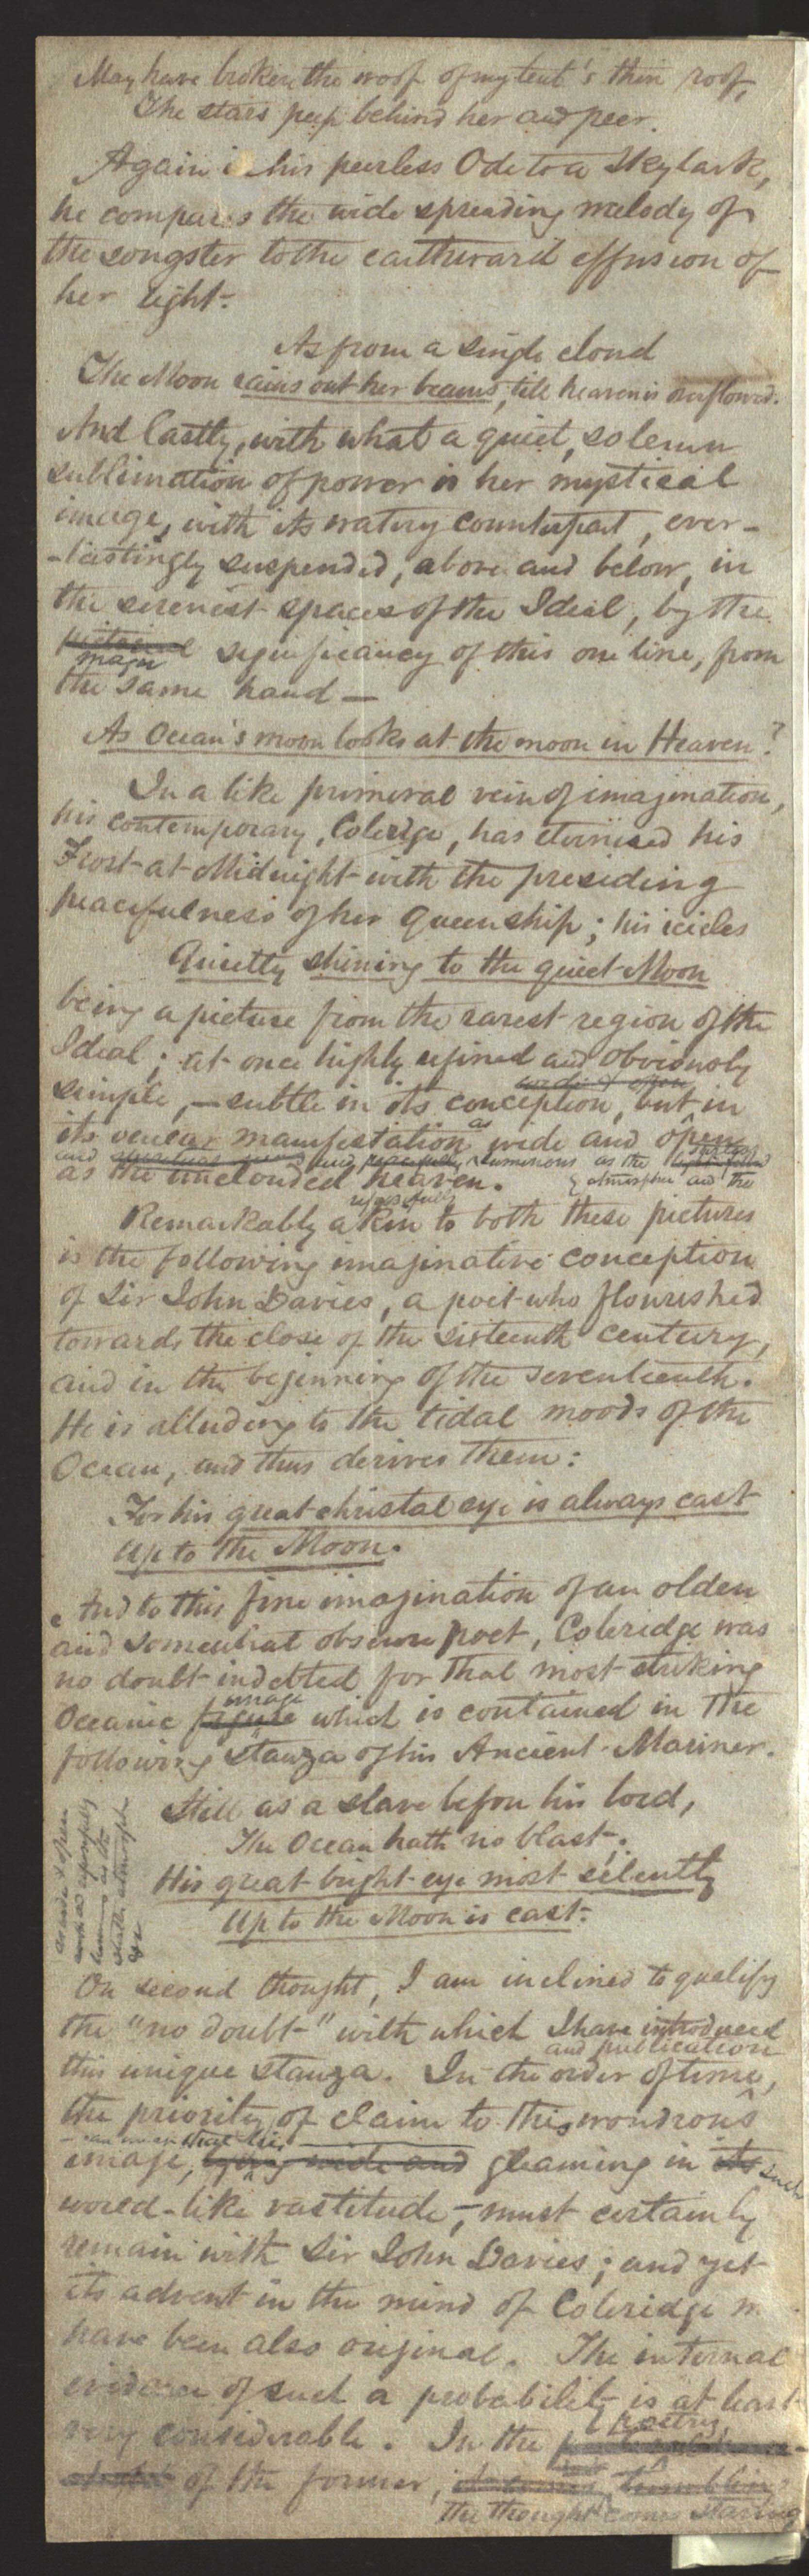 May have broken the woof of my tent's thin roof,
The stars peep behind her and peer.
Again in his peerless Ode to a Skylark,
he compares the wide spreading melody of
the songster to the earthward effusion of
her light.
As from a single cloud
The Moon rains out her beams, till heaven is overflowed.
And lastly, with what a quiet, solemn
sublimation of power is her mystical
image, with its watery counterpart, ever-
-lastingly suspended, above and below, in
the serenest spaces of the Ideal, by the
pictorial
magic significancy of this one line, from
the same hand —
As Ocean's moon looks at the moon in Heaven?
In a like primeval vein of imagination,
his contemporary, Coleridge, has eternised his
Frost-at-Midnight with the presiding
peacefulness of her Queenship; his icicles
Quietly shining to the quiet Moon
being a picture from the rarest region of the
Ideal; at once highly refined and obviously
simple, — subtle in its conception, but in
its manifestation as wide and open
and luminous as the
as the unclouded heaven.
& atmosphere and the
Remarkably akin to both these pictures
is the following imaginative conception
of Sir John Davies, a poet who flourished
towards the close of the sixteenth century,
and in the beginning of the seventeenth.
He is alluding to the tidal moods of the
Ocean, and thus derives them:
For his great christal eye is always cast
Up to the Moon.
And to this fine imagination of an olden
and somewhat obscure poet, Coleridge was
no doubt indebted for that most striking
image
Oceanic figure which is contained in the
following stanza of his Ancient Mariner.
Still as a slave before his lord,
The Ocean hath no blast;
His great bright eye most silently
Up to the Moon is cast.
as wide & open
On second thought, I am inclined to qualify
the "no doubt" with which I have introduced
and publication
this unique stanza. In the order of time,
the priority of claim to this wondrous
image, lying wide and gleaming in its such
world-like vastitude, — must certainly
remain with Sir John Davies; and yet
its advent in the mind of Coleridge
have been also original. The internal
evidence of such a probability is at least
very considerable. In the
poetry
of the former,
the thought comes starting